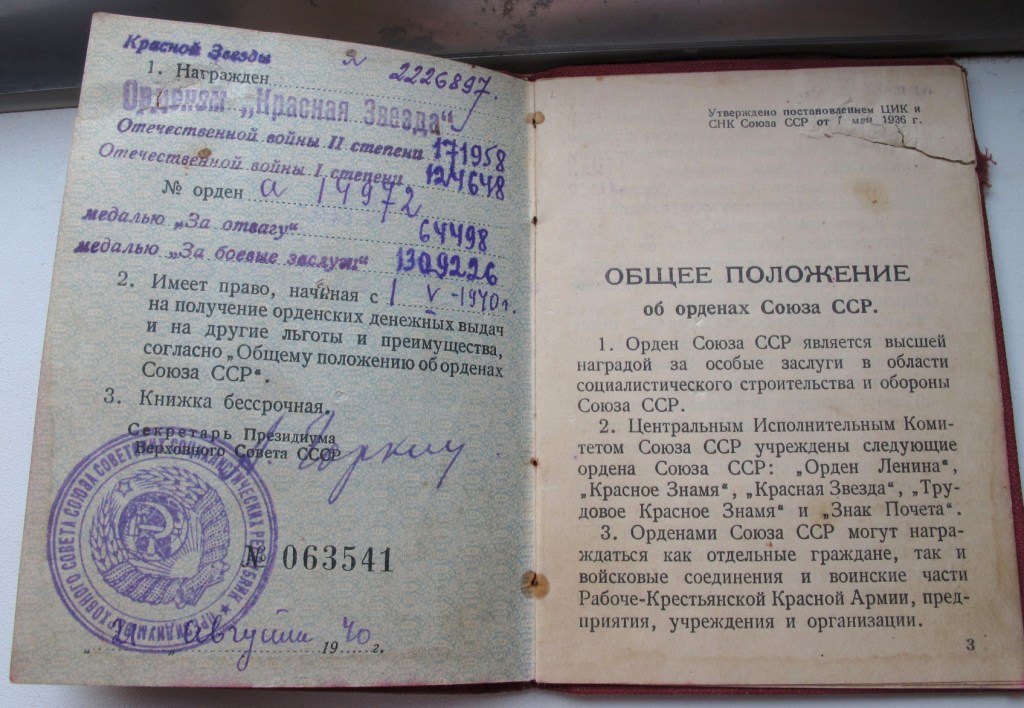 Красной Звезды № 2226897.
1. Награжден
Орденом „Красная Звезда“
Отечественной войны II степени 171958
Отечественной войны I степени 124648
№ орден а 14972
медалью „За отвагу“ 64498
медалью „За боевые заслуги“ 1309226
2. Имеет право, начиная с 1 V -1940 г.
на получение орденских денежных выдач
и на другие льготы и преимущества,
согласно „Общему положению об орденах
Союза ССР“.
3. Книжка бессрочная.
Секретарь Президиума
Верховного Совета СССР А. Горкин
№ 063541
„21 „ Августа 1940 г.
Утверждено постановлением ЦИК и
СНК Союза ССР от 7 мая 1936 г.
ОБЩЕЕ ПОЛОЖЕНИЕ
об орденах Союза ССР.
1. Орден Союза ССР является высшей
наградой за особые заслуги в области
социалистического строительства и обороны
Союза ССР.
2. Центральным Исполнительным Коми-
тетом Союза ССР учреждены следующие
ордена Союза ССР: „Орден Ленина“,
„Красное Знамя“, „Красная Звезда“, „Тру-
довое Красное Знамя“ и „Знак Почета“.
3. Орденами Союза ССР могут награ-
ждаться как отдельные граждане, так и
войсковые соединения и воинские части
Рабоче-Крестьянской Красной Армии, пред-
приятия, учреждения и организации.
3